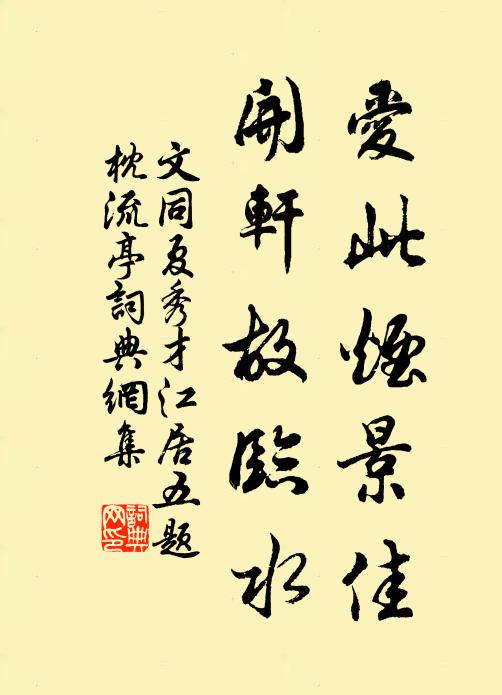 愛此煙景佳
開軒故臨水
文同夏秀才江居五題
枕流亭詞典網集
詞典
网印